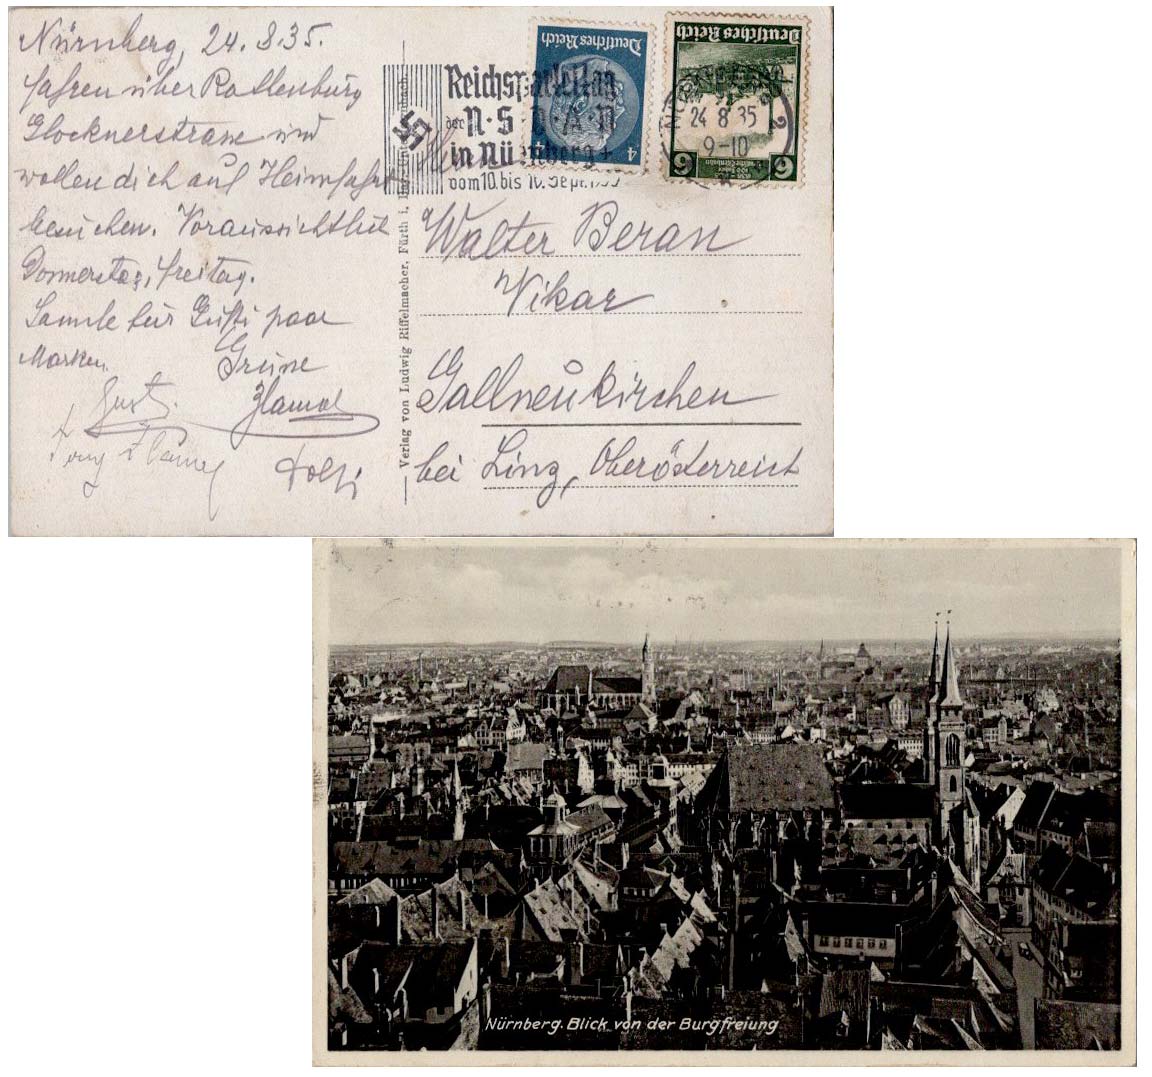 Nürnberg, 24.8.35.
fahren über Rothenburg
Glocknerstrasse und
wollen dich auf Heimfahrt
besuchen. Voraussichtlich
Donnerstag, Freitag.
Samle für Gusti paar
Marken.
Grüsse
Hamal
Gust.
Dolfi
Verlag von Ludwig Riffelmacher, Fürth i.
Reichsparteitag
der N·S·D·A·P
in Nürnberg +
vom 10. bis 16. Sept. 1935
Deutsches Reich
4 4
Deutsches Reich
6 6
24 8 35
9-10
2
Walter Beran
Vikar
Gallneukirchen
bei Linz, Oberösterreich
Nürnberg. Blick von der Burgfreiung